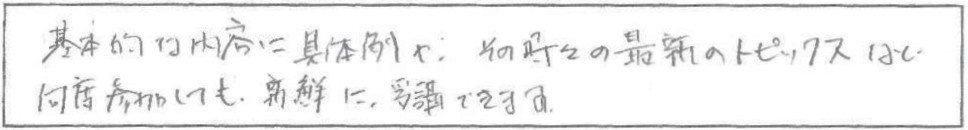 基本的な内容に具体例や、その時々の最新のトピックスなど
何度参加しても、新鮮に、受講できます。